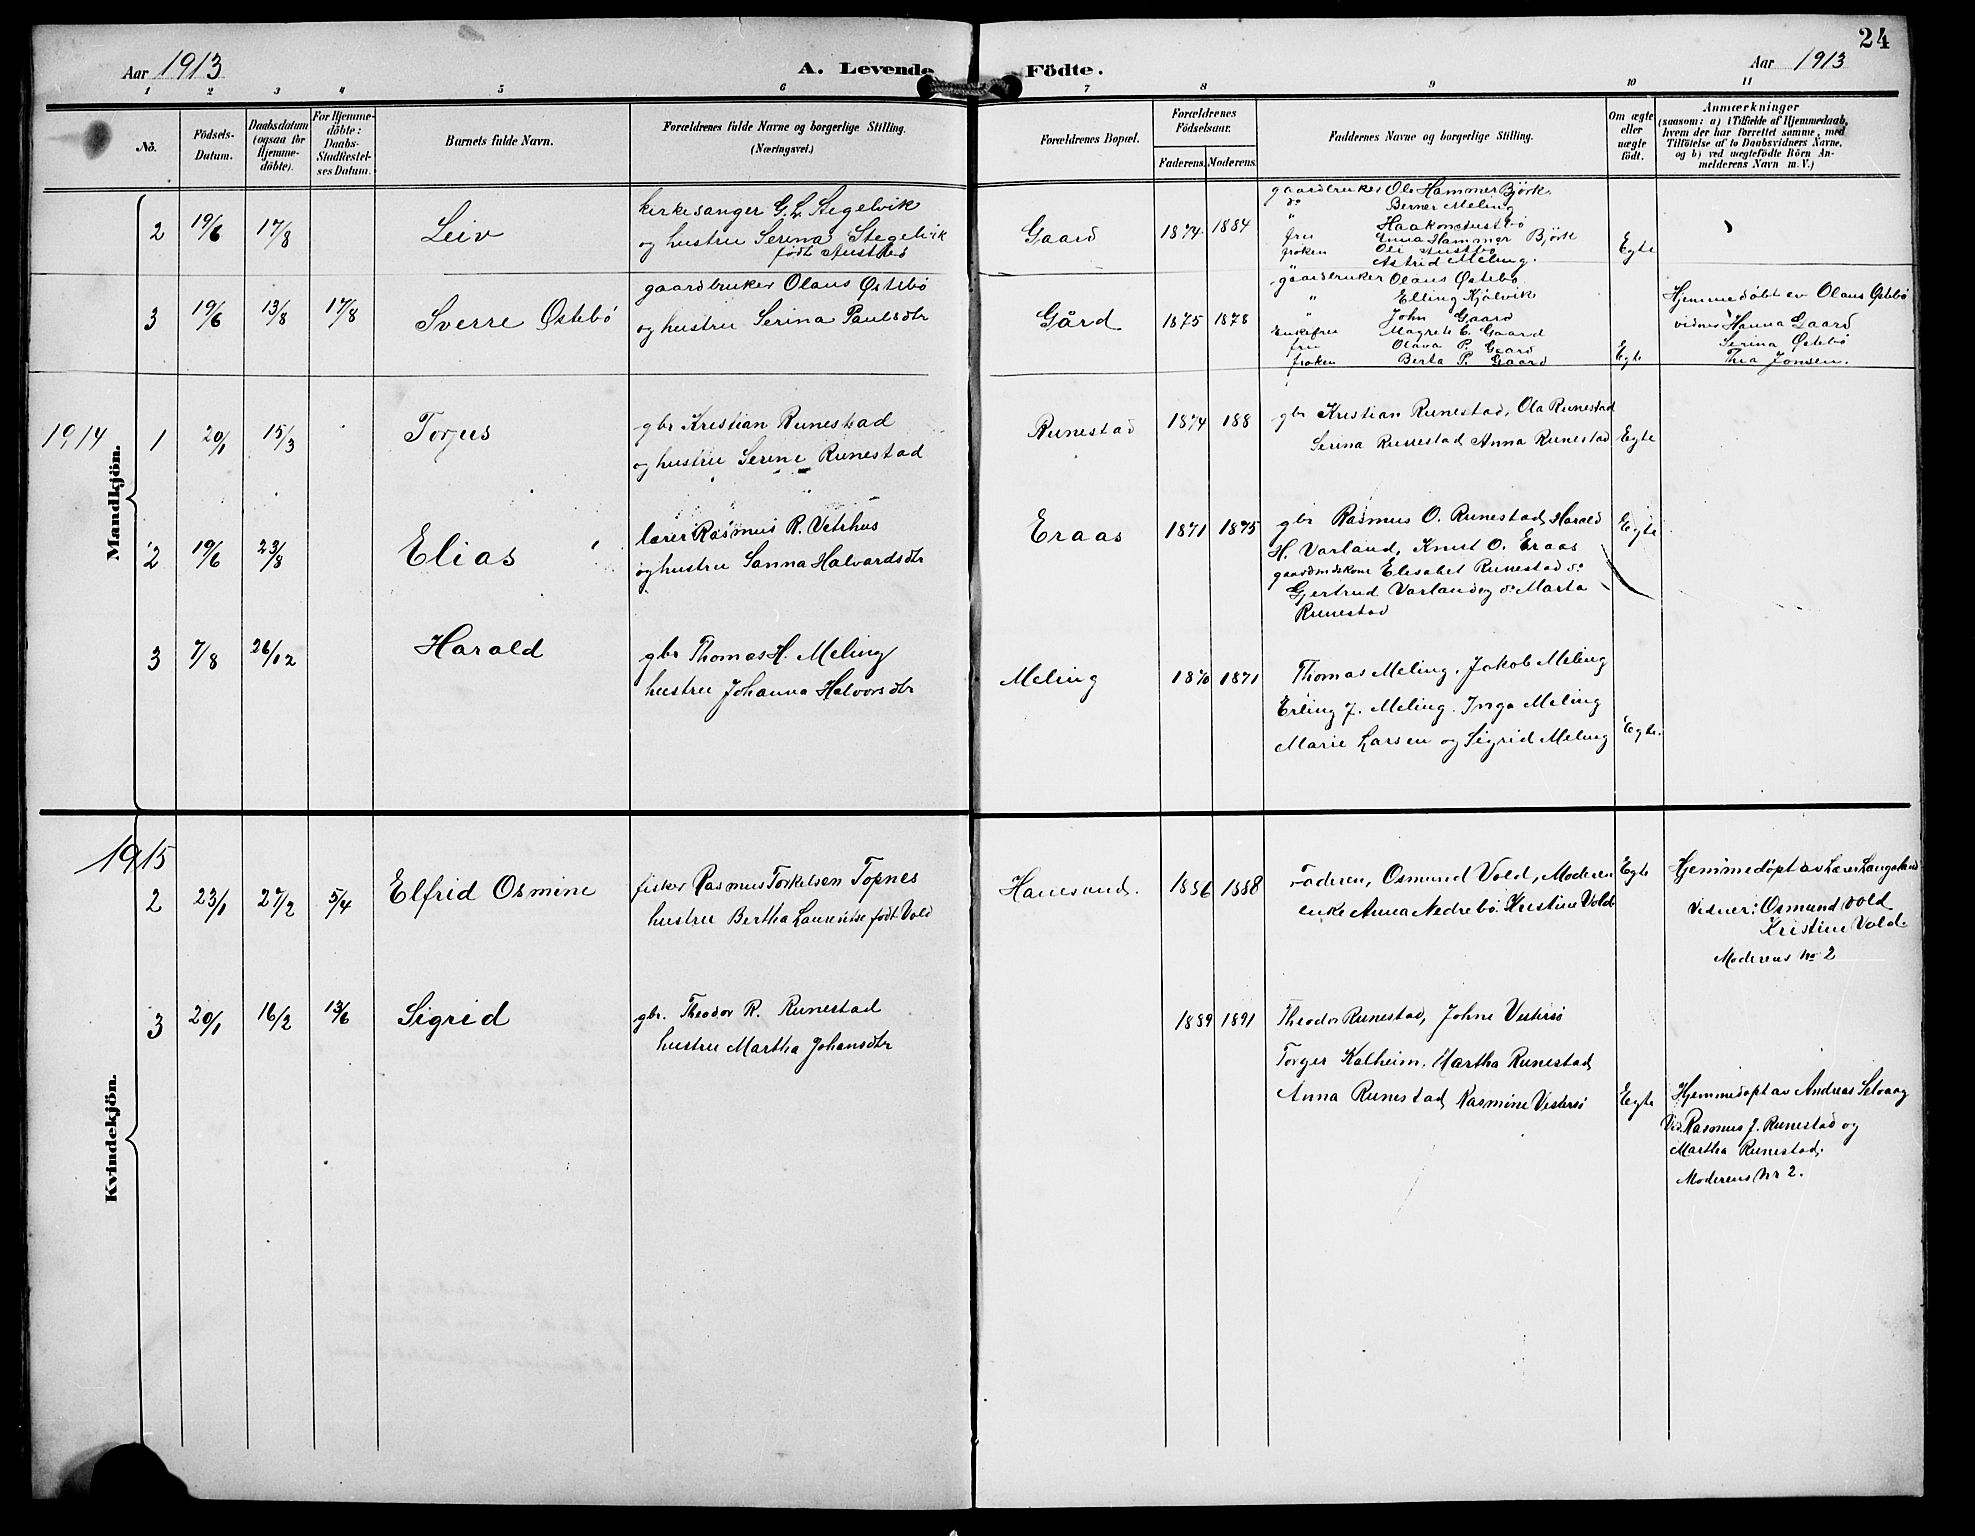 24
Aar 1913
A. Levende Födte.
Aar 1913
1 2 3 4 5 6 7 8 9 10 11
No.
Födsels-
Datum.
Daabsdatum
(ogsaa for
Hjemme-
döbte).
For Hjemme-
döbte:
Daabs-
Stadfæstel-
ses Datum.
Barnets fulde Navn.
Forældrenes fulde Navne og borgerlige Stilling.
(Næringsvei.)
Forældrenes Bopæl.
Forældrenes
Födselsaar.
Faderens. Moderens.
Faddernes Navne og borgerlige Stilling.
Om ægte
eller
uægte
födt.
Anmærkninger
(saasom: a) i Tilfælde af Hjemmedaab,
hvem der har forrettet samme, med
Tilföielse af to Daabsvidners Navne,
og b) ved uægtefödte Börn An-
melderens Navn m. V.)
Mandkjön.
2 19/6 17/8 Leiv
kirkesanger G. L. Stegelvik
og hustru Serina Stegelvik
født Austbø
Gaard 1874 1884
gaardbruker Ole Hammer Bjørk
do Berner Meling
" Haakon Austbø
fru Enna Hammer Bjørk
frøken Oli Austbø
" Astrid Meling.
Egte
3 19/6 13/8 17/8 Sverre Østebö
gaardbruker Olaus Østebö
og hustru Serina Paulsdtr
Gård 1875 1878
gaardbruker Olaus Østebö
" Elling Kjølvik
" John Gaard
Enkefru Magrete E. Gaard
fru Olava P. Gaard
frøken Berta P. Gaard
Egte
Hjemmedöbt av Olaus Østebö
vidner Hanna Gaard
Serina Østebö
Thea Jonsen.
1914
1 20/1 15/3 Torjus
gbr Kristian Runestad
og hustru Serine Runestad
Runestad 1874 188
gbr Kristian Runestad, Ola Runestad
Serina Runestad Anna Runestad
Egte
2 19/6 23/8 Elias
lærer Rasmus R. Vetrhus
og hustru Sanna Halvardsdtr
Eraas 1871 1875
gbr Rasmus O. Runestad, Harald
H. Varland, Knut O. Eraas
gaardmdskone Elisabet Runestad do
Gjertrud Varland og do Marta
Runestad
Egte
3 7/8 26/12 Harald
gbr Thomas H. Meling
hustru Johanna Halvorsdtr
Meling 1870 1871
Thomas Meling, Jakob Meling
Erling J. Meling. Inga Meling
Marie Larsen og Sigrid Meling
Egte.
1915
Kvindekjön.
2 23/1 27/2 5/4 Elfrid Osmine
fisker Rasmus Torkelsen Topnes
hustru Bertha Laurentse født Vold
Hanesund. 1886 1888
Faderen, Osmund Vold, Moderen
enke Anna Nedrebö. Kristine Vold
Egte
Hjemmedøpt av Lærer Langaland
Vidner: Osmund Vold
Kristine Vold.
Moderens no 2
3 20/1 16/2 13/6 Sigrid
gbr. Theodor R. Runestad
hustru Martha Johansdtr
1889 1891
Theodor Runestad, Johne Vestersø
Torger Kalheim, Martha Runestad
Anna Runestad, Rasmine Vestersø
Egte
Hjemmedøpt av Andreas Selvaag
Vid. Rasmus J. Runestad og
Martha Runestad.
Moderens Nr 2.